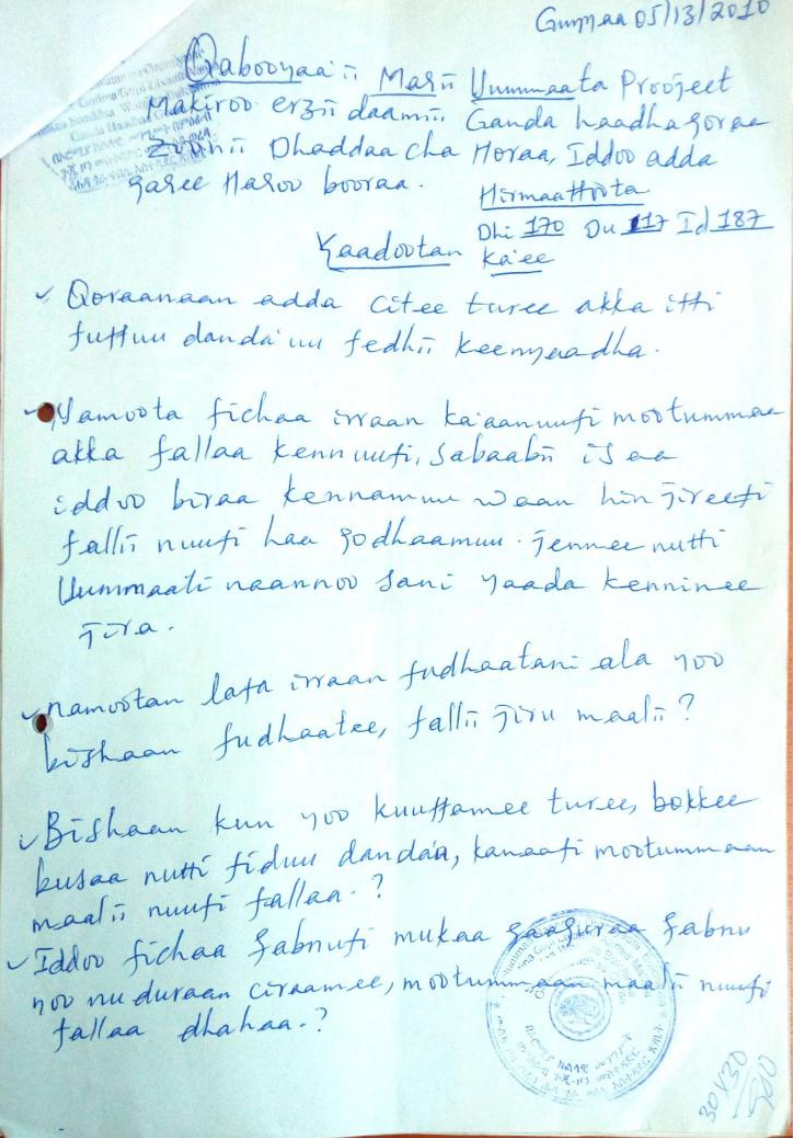 Gunyaa 05/13/2010
Qabooyaa'ii Marii Uummaata Proojeet
Makiroo erzii daamii Ganda haadhagoraa
Dhaddaacha Horaa, Iddoo adda
garee Haroo booraa.
Hirmaattoota
Dhi 170 Du 117 Id 187
Yaadootan ka'ee
Qoraanaan adda citee turee akka itti
fuffuu danda'uu fedhii keenyaadha.
Namoota fichaa irraan ka'aanuufi mootummaa
akka fallaa kennuufi, sabaabii isaa
iddoo biraa kennamuu waan hin jireefi
fallii nuufi haa godhaamuu. jennee nutti
Uummaati naannoo sani yaada kenninee
jira.
namootan lafa irraan fudhaatani ala yoo
bishaan fudhaatee, fallii jiru maalii?
Bishaan kun yoo kuuffamee turee, bokkee
busaa nutti fiduu danda'a, kanaafi mootummaan
maalii nuufi fallaa.?
Iddoo fichaa qabnufi mukaa gaaguraa qabnu
yoo nu duraan ciraamee, mootummaan maalii nuufi
fallaa dhahaa.?
30x30